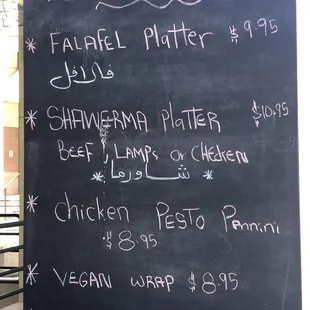 * FALAFEL Platter $9.95
فلافل
* SHAWERMA Platter $10.95
BEEF, LAMPS or CHECKEN
* شاورما *
* chicken PESTO Pannini
$8.95
* VEGAN WRAP $8.95